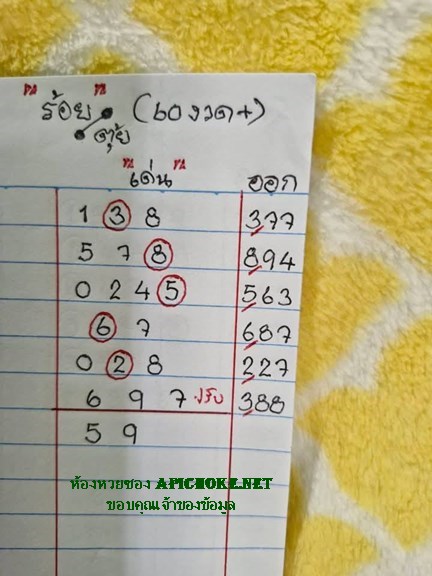 "ร้อย" (60 งวด+)
ตุ้ย
"เด่น" ออก
1 3 8 377
5 7 8 894
0 2 4 5 563
6 7 687
0 2 8 227
6 9 7 ปรับ 388
5 9
ห้องหวยซอง APICHOKE.NET
ขอบคุณเจ้าของข้อมูล